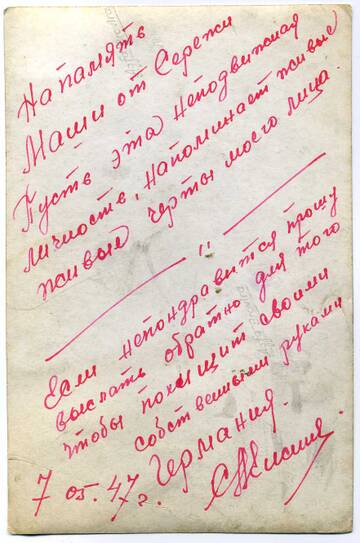 На память
Маши от Сережи
Пусть эта неподвижная
личность, напоминает живые
живые черты моего лица.
— " —
Если непондравится прошу
выслать обратно для того
чтобы похищит своими
собственными руками
Германия.
7 05. 47 г.